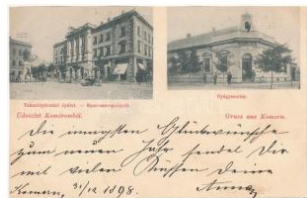 Takarékpénztári épület. — Sparcassagebäude.
Gymnasium.
Üdvözlet Komáromból.
Gruss aus Komorn.
Die innigsten Glückwünsche
zum neuen Jahr sendet dir
mit vielen Küssen deine
Anna
Komorn, 31/12 1898.